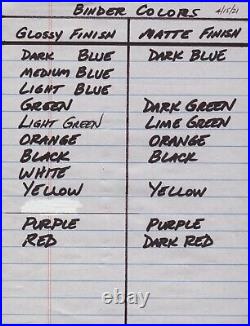 BINDER COLORS 4/15/21
GLOSSY FINISH MATTE FINISH
DARK BLUE DARK BLUE
MEDIUM BLUE
LIGHT BLUE
GREEN DARK GREEN
LIGHT GREEN LIME GREEN
ORANGE ORANGE
BLACK BLACK
WHITE
YELLOW YELLOW
PURPLE PURPLE
RED DARK RED